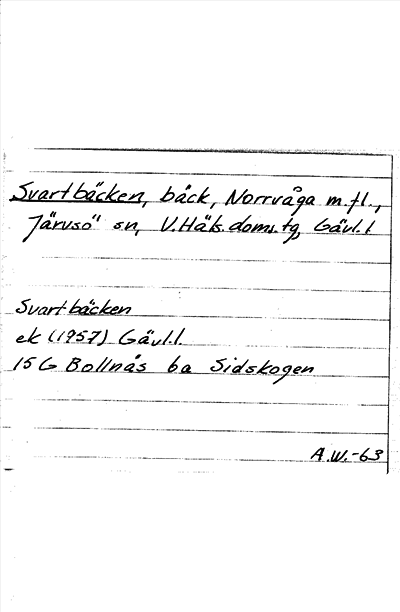 Svartbäcken, bäck, Norrvåga m.fl.,
Järvsö sn, V.Häls.doms.tg, Gävl.l
Svartbäcken
ek (1957) Gävl.l.
15 G Bollnäs ba Sidskogen
A.W.-63